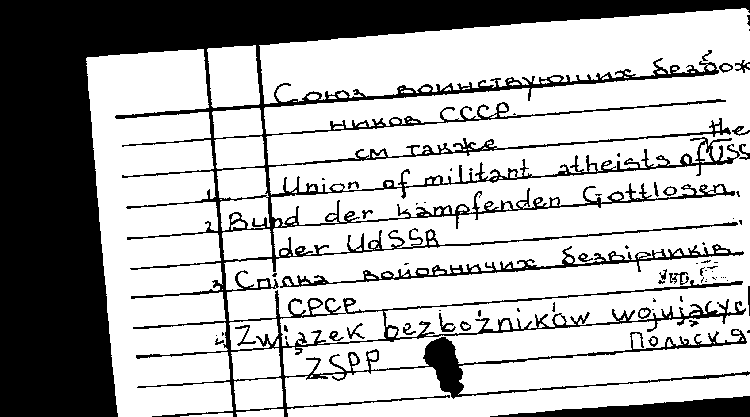 Союз воинствующих безбож
ников СССР.
см также
the
1. Union of militant atheists of USS
2. Bund der kämpfenden Gottlosen
der UdSSR
3. Спілка войовничих безвірників
СРСР
укр.
4. Związek bezbożników wojujący
ZSPP
Польск. я